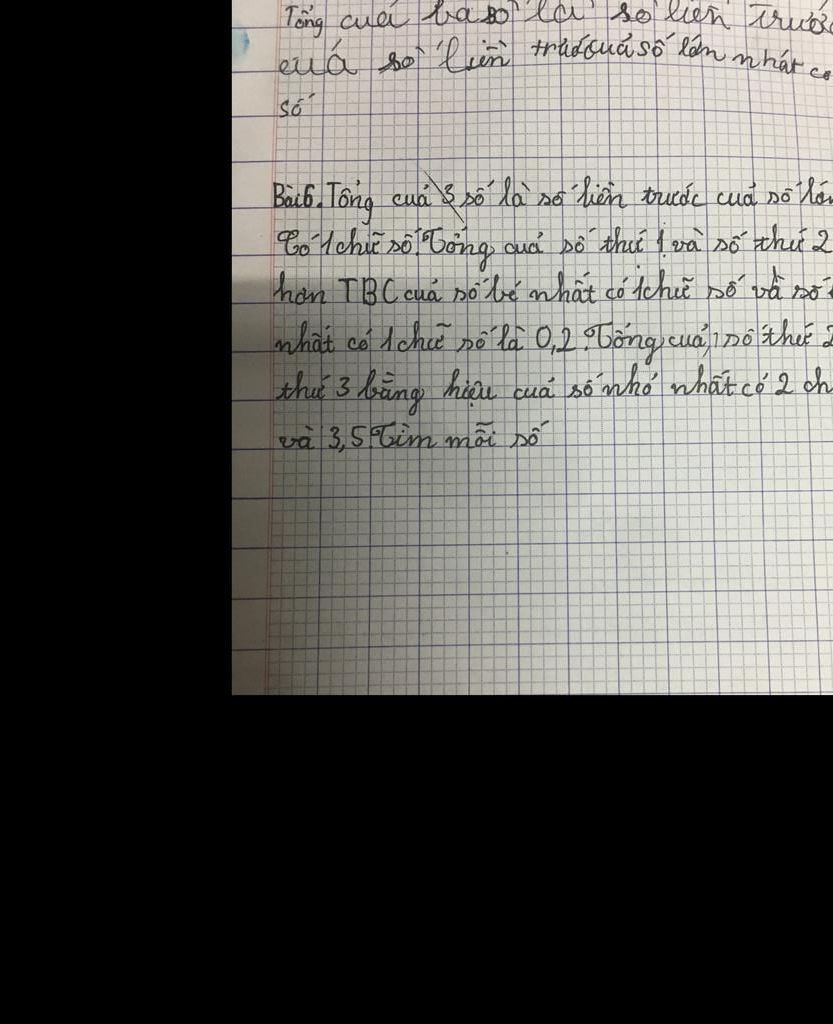 Tổng cuả ba số là số liền trước
cuả số liền trước cuả số lớn nhất có
số
Bài 6. Tổng cuả 3 số là số liền trước cuả số lớn
Có 1 chữ số. Tổng cuả số thứ 1 và số thứ 2
hơn TBC cuả số bé nhất có 1 chữ số và số
nhất có 1 chữ số là 0,2. Tổng cuả số thứ 2
thứ 3 bằng hiệu cuả số nhỏ nhất có 2 ch
và 3,5 Tìm mỗi số